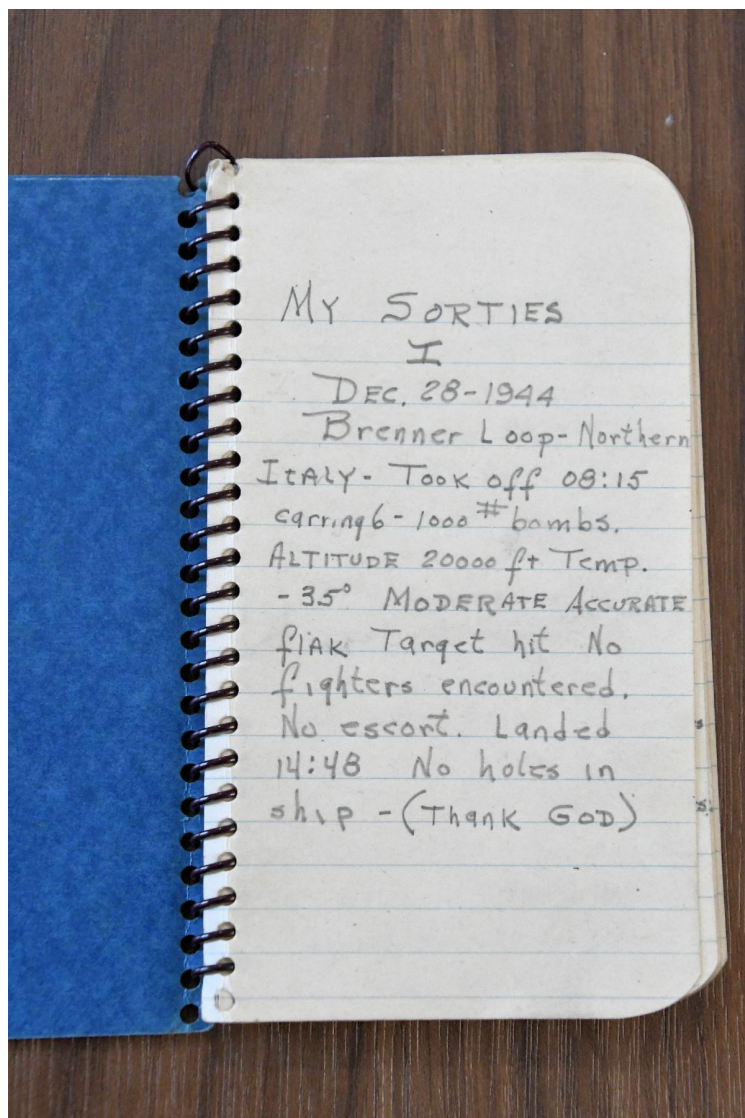 MY SORTIES
I
DEC. 28-1944
Brenner Loop-Northern
ITALY- TOOK off 08:15
carring 6-1000 # bombs.
ALTITUDE 20000 ft Temp.
-35° MODERATE ACCURATE
flAK Target hit No
fighters encountered.
No escort. Landed
14:48 No holes in
ship -(Thank GOD)